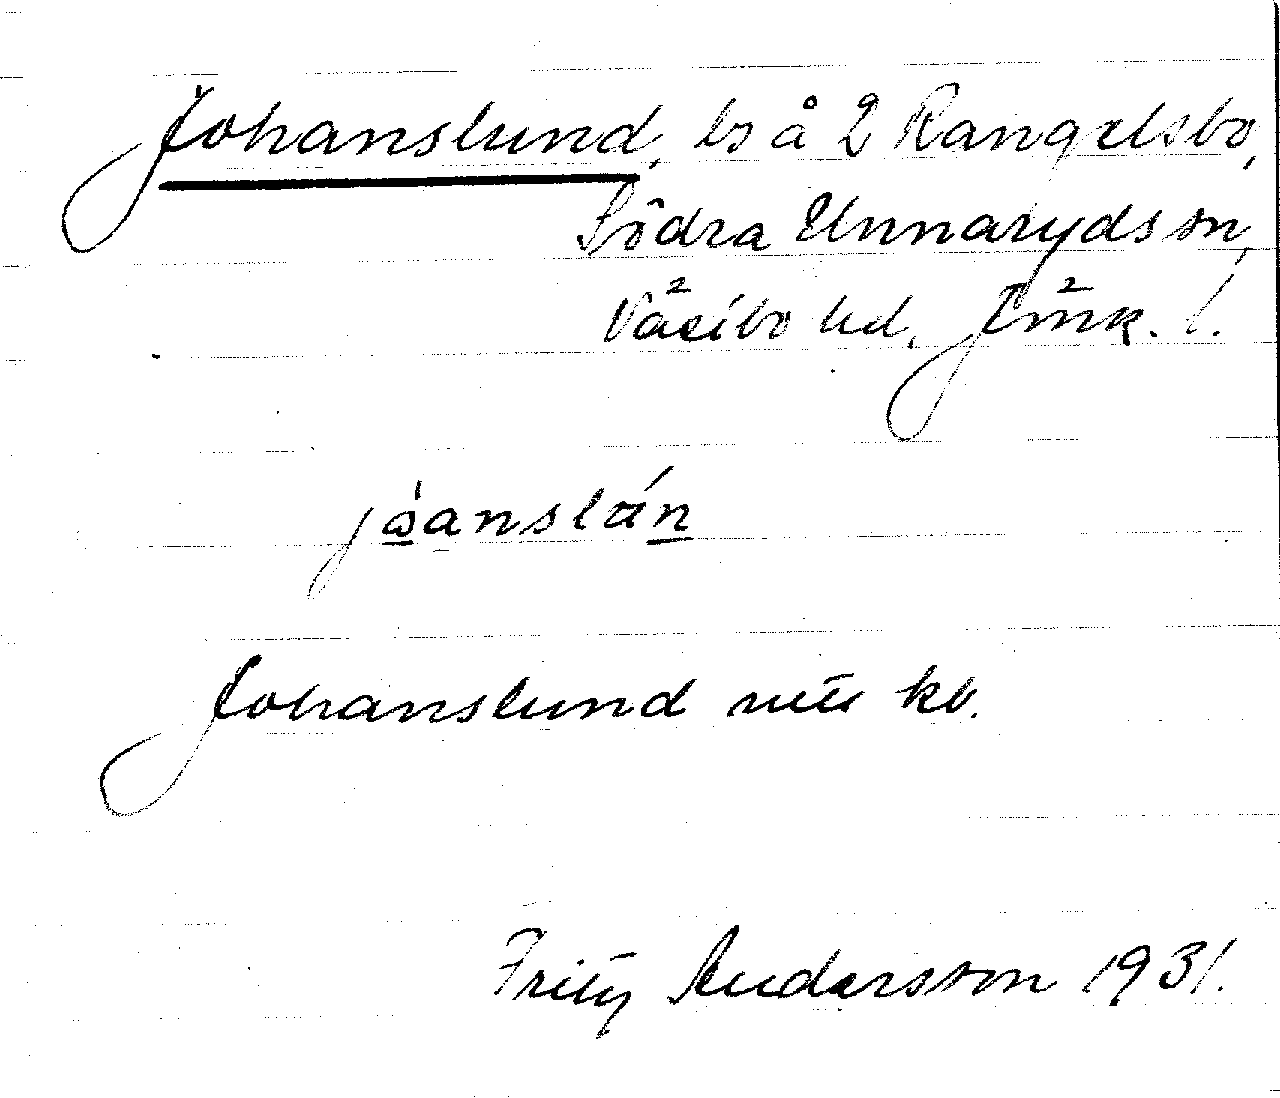 Johanslund, ls å 2 Rangelsbo,
Södra Unnaryds sn,
Västbo hd, Jönk. l.
Johanslund kb.
Fritz Andersson 1931.